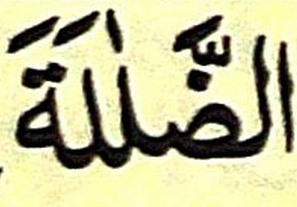 الضَّلٰلَةَ